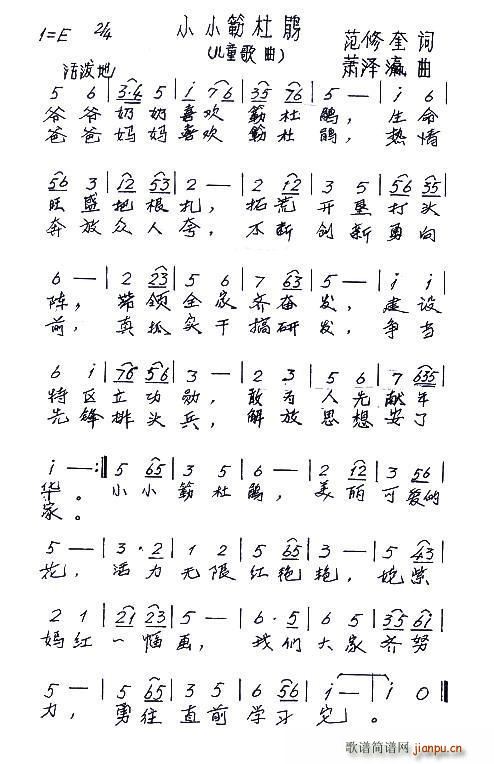 1=E 2/4 小小簕杜鹃 范修奎 词
(儿童歌曲) 萧泽瀛 曲
活泼地
5 6 | 3·4 5 | i 76 | 35 76 | 5 — | i 6 |
爷爷奶奶喜欢簕杜鹃，生命
爸爸妈妈喜欢簕杜鹃，热情
56 3 | 12 53 | 2 — | 2 12 | 3 5 | 56 35 |
旺盛把根扎，拓荒开垦打头
奔放众人夸，不断创新勇向
6 — | 2 23 | 5 6 | 7 63 | 5 — | i i |
阵，带领全家齐奋发，建设
前，真抓实干搞研发，争当
6 i | 76 56 | 3 — | 2 3 | 5 6 | 7 635 |
特区立功勋，敢为人先献年
先锋排头兵，解放思想安了
i — :| 5 65 | 3 5 | 3 — | 2 12 | 3 56 |
华。小小簕杜鹃，美丽可爱的
家。
5 — | 3·2 | 1 2 | 5 65 | 3 — | 5 43 |
花，活力无限红艳艳，姹紫
2 1 | 21 23 | 5 — | 6·5 | 6 5 | 35 61 |
嫣红一幅画，我们大家齐努
5 — | 5 65 | 3 5 | 6 56 | i — | i 0 |
力，勇往直前学习它。
歌谱简谱网
jianpu.cn